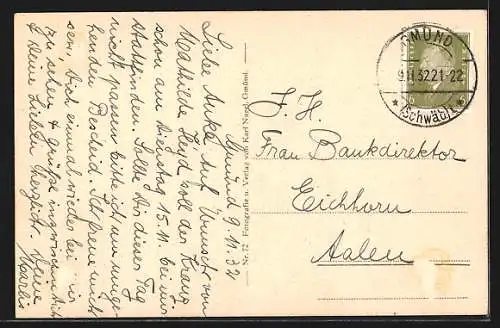 Gmünd 9.11.32
Liebe Anke! Auf Wunsch von
Mathilde Heyd soll der Kranz
schon am Dienstag 15.11. bei mir
stattfinden. Sollte Dir dieser Tag
nicht passen bitte ich um umge-
henden Bescheid. Ich freue mich
sehr, Dich einmal wieder bei mir
zu sehen & grüße inzwischen Dich
& Deine Lieben herzlich. Deine
Nr. 72 Fotografie u. Verlag von Karl Nagel, Gmünd.
GMÜND
9.11.32.21-22
(Schwäb)
F. H.
Frau Bankdirektor
Eichhorn
Aalen